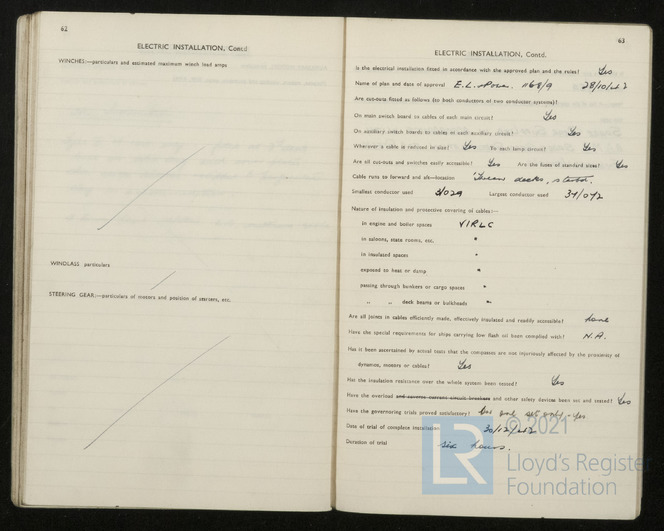 62
ELECTRIC INSTALLATION, Contd
WINCHES:—particulars and estimated maximum winch load amps
WINDLASS particulars
STEERING GEAR:—particulars of motors and position of starters, etc.
63
ELECTRIC INSTALLATION, Contd.
Is the electrical installation fitted in accordance with the approved plan and the rules? Yes
Name of plan and date of approval 1168/9 28/10/42
Are cut-outs fitted as follows (to both conductors of two conductor systems):—
On main switch board to cables of each main circuit? Yes
On auxiliary switch boards to cables of each auxiliary circuit? Yes
Wherever a cable is reduced in size? Yes To each lamp circuit? Yes
Are all cut-outs and switches easily accessible? Yes Are the fuses of standard sizes? Yes
Cable runs to forward and aft—location 'Tween decks, starbd.
Smallest conductor used 3/029 Largest conductor used 37/072
Nature of insulation and protective covering of cables:—
in engine and boiler spaces VIRLC
in saloons, state rooms, etc. "
in insulated spaces "
exposed to heat or damp "
passing through bunkers or cargo spaces "
„ „ deck beams or bulkheads "
Are all joints in cables efficiently made, effectively insulated and readily accessible? none
Have the special requirements for ships carrying low flash oil been complied with? N.A.
Has it been ascertained by actual tests that the compasses are not injuriously affected by the proximity of
dynamos, motors or cables? Yes
Has the insulation resistance over the whole system been tested? Yes
Have the overload and reverse current circuit breakers and other safety devices been set and tested? Yes
Have the governoring trials proved satisfactory? set only - Yes
Date of trial of complete installation 30/12/42
Duration of trial six hours.
LR © 2021
Lloyd's Register
Foundation